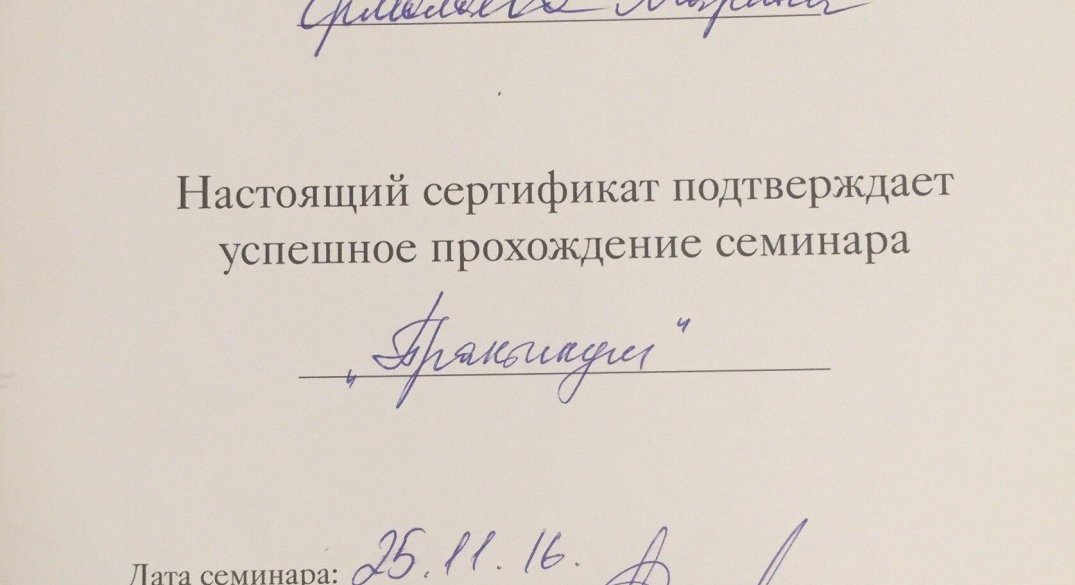 Ермолаева Марина
Настоящий сертификат подтверждает
успешное прохождение семинара
„Практикум"
Дата семинара: 25.11.16.